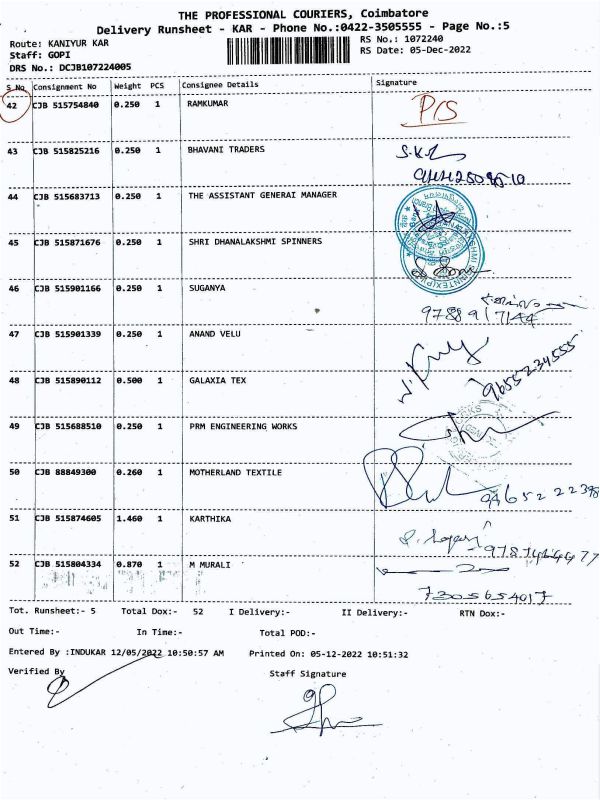 THE PROFESSIONAL COURIERS, Coimbatore
Delivery Runsheet - KAR - Phone No.:0422-3505555 - Page No.:5
Route: KANIYUR KAR RS No.: 1072240
Staff: GOPI RS Date: 05-Dec-2022
DRS No.: DCJB107224005
S No Consignment No Weight PCS Consignee Details Signature
42 CJB 515754840 0.250 1 RAMKUMAR P/S
43 CJB 515825216 0.250 1 BHAVANI TRADERS
44 CJB 515683713 0.250 1 THE ASSISTANT GENERAI MANAGER
45 CJB 515871676 0.250 1 SHRI DHANALAKSHMI SPINNERS
46 CJB 515901166 0.250 1 SUGANYA
47 CJB 515901339 0.250 1 ANAND VELU
48 CJB 515890112 0.500 1 GALAXIA TEX 9655234555
49 CJB 515688510 0.250 1 PRM ENGINEERING WORKS
50 CJB 88849300 0.260 1 MOTHERLAND TEXTILE
51 CJB 515874605 1.460 1 KARTHIKA
52 CJB 515804334 0.870 1 M MURALI
7305654017
Tot. Runsheet:- 5 Total Dox:- 52 I Delivery:- II Delivery:- RTN Dox:-
Out Time:- In Time:- Total POD:-
Entered By :INDUKAR 12/05/2022 10:50:57 AM Printed On: 05-12-2022 10:51:32
Verified By Staff Signature